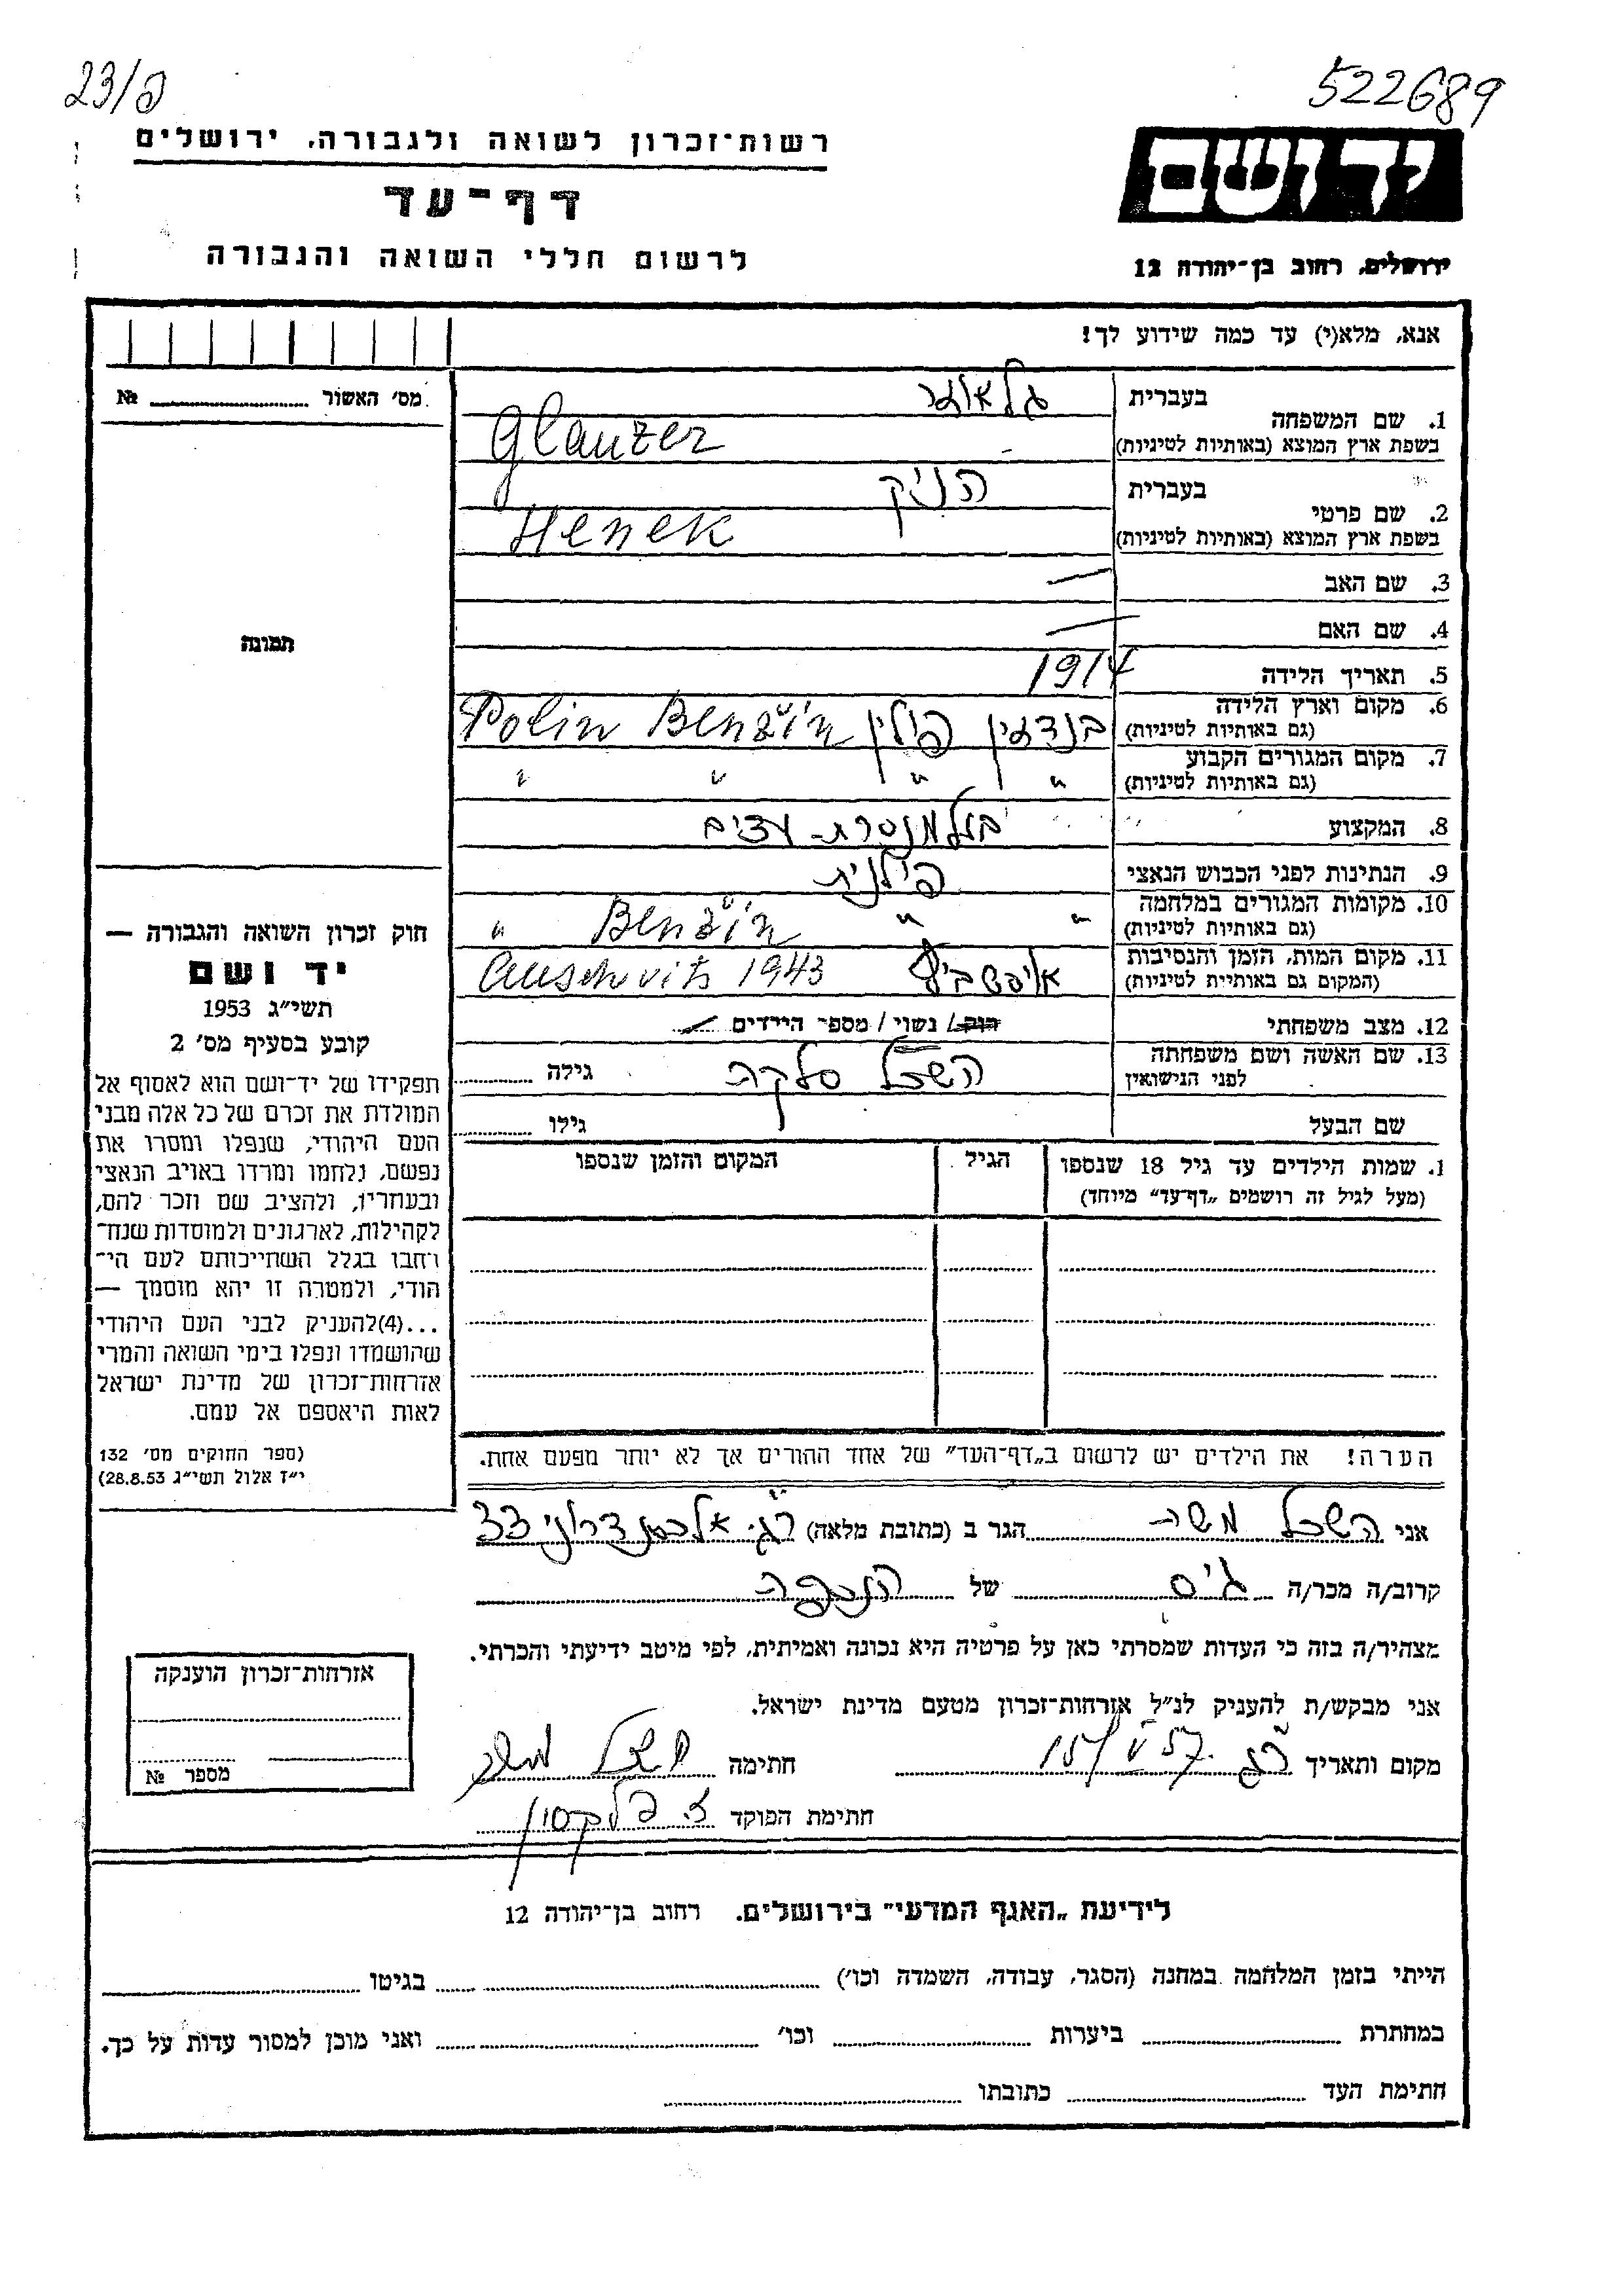 23/פ
522689
רשות־זכרון לשואה ולגבורה, ירושלים
דף־עד
לרשום חללי השואה והגבורה
יד ושם
ירושלים, רחוב בן־יהודה 12
אנא, מלא(י) עד כמה שידוע לך!
מס׳ האשור № 
תמונה
חוק זכרון השואה והגבורה —
יד ושם
תשי״ג 1953
קובע בסעיף מס׳ 2
תפקידו של יד־ושם הוא לאסוף אל
המולדת את זכרם של כל אלה מבני
העם היהודי, שנפלו ומסרו את
נפשם, נלחמו ומרדו באויב הנאצי
ובעוזריו, ולהציב שם וזכר להם,
לקהילות, לארגונים ולמוסדות שנח־
רבו בגלל השתייכותם לעם הי־
הודי, ולמטרה זו יהא מוסמך —
...(4) להעניק לבני העם היהודי
שהושמדו ונפלו בימי השואה והמרי
אזרחות־זכרון של מדינת ישראל
לאות היאספם אל עמם.
(ספר החוקים מס׳ 132
י״ז אלול תשי״ג 28.8.53)
1. שם המשפחה
בעברית גלאוזר
בשפת ארץ המוצא (באותיות לטיניות) Glauzer
2. שם פרטי
בעברית הניק
בשפת ארץ המוצא (באותיות לטיניות) Henek
3. שם האב —
4. שם האם —
5. תאריך הלידה 1914
6. מקום וארץ הלידה
(גם באותיות לטיניות) בנדזין פולין Polin Benźin
7. מקום המגורים הקבוע
(גם באותיות לטיניות) " " " "
8. המקצוע עצים
9. הנתינות לפני הכבוש הנאצי פולנית
10. מקומות המגורים במלחמה
(גם באותיות לטיניות) " " Benźin "
11. מקום המות, הזמן והנסיבות
(המקום גם באותיות לטיניות) אושביץ Auschvits 1943
12. מצב משפחתי רווק / נשוי / מספר הילדים —
13. שם האשה ושם משפחתה
לפני הנישואין השכל סלקה גילה
שם הבעל גילו
1. שמות הילדים עד גיל 18 שנספו
(מעל לגיל זה רושמים „דף־עד״ מיוחד)
הגיל
המקום והזמן שנספו
הערה! את הילדים יש לרשום ב„דף־העד״ של אחד ההורים אך לא יותר מפעם אחת.
אני השכל משה הגר ב (כתובת מלאה) ר״ג אלכסנדרוני 33
קרוב/ה מכר/ה גיס של הנספה
מצהיר/ה בזה כי העדות שמסרתי כאן על פרטיה היא נכונה ואמיתית, לפי מיטב ידיעתי והכרתי.
אני מבקש/ת להעניק לנ״ל אזרחות־זכרון מטעם מדינת ישראל.
מקום ותאריך ר״ג 15/V 57 חתימה השכל משה
חתימת הפוקד
אזרחות־זכרון הוענקה
מספר №
לידיעת „האגף המדעי״ בירושלים. רחוב בן־יהודה 12
הייתי בזמן המלחמה במחנה (הסגר, עבודה, השמדה וכו׳) בגיטו
במחתרת ביערות וכו׳ ואני מוכן למסור עדות על כך.
חתימת העד כתובתו